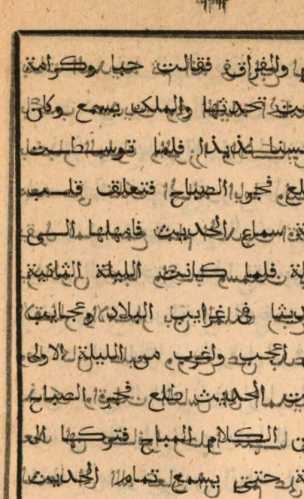 والفراق فقالت حبا وكرامة
تحدثها والملك يسمع وكان
لذيذا فلما توسطت
فجر الصباح فتعلق قلب
سماع الحديث فامهلها الى
فلما كانت الليلة الثانية
فى غرايب البلاد وعجايب
اعجب واغرب من الليلة الاولى
الحديث طلع فجر الصباح
الكلام المباح فتركها الى
حتى يسمع تمام الحديث